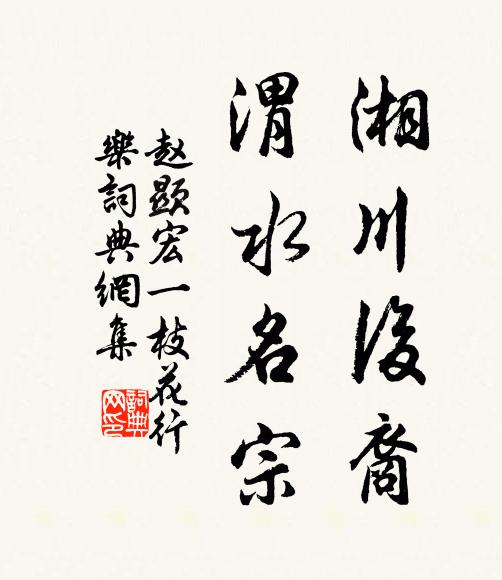 湘川後裔
渭水名宗
赵顯宏一枝花行
樂詞典網集
詞典
网印